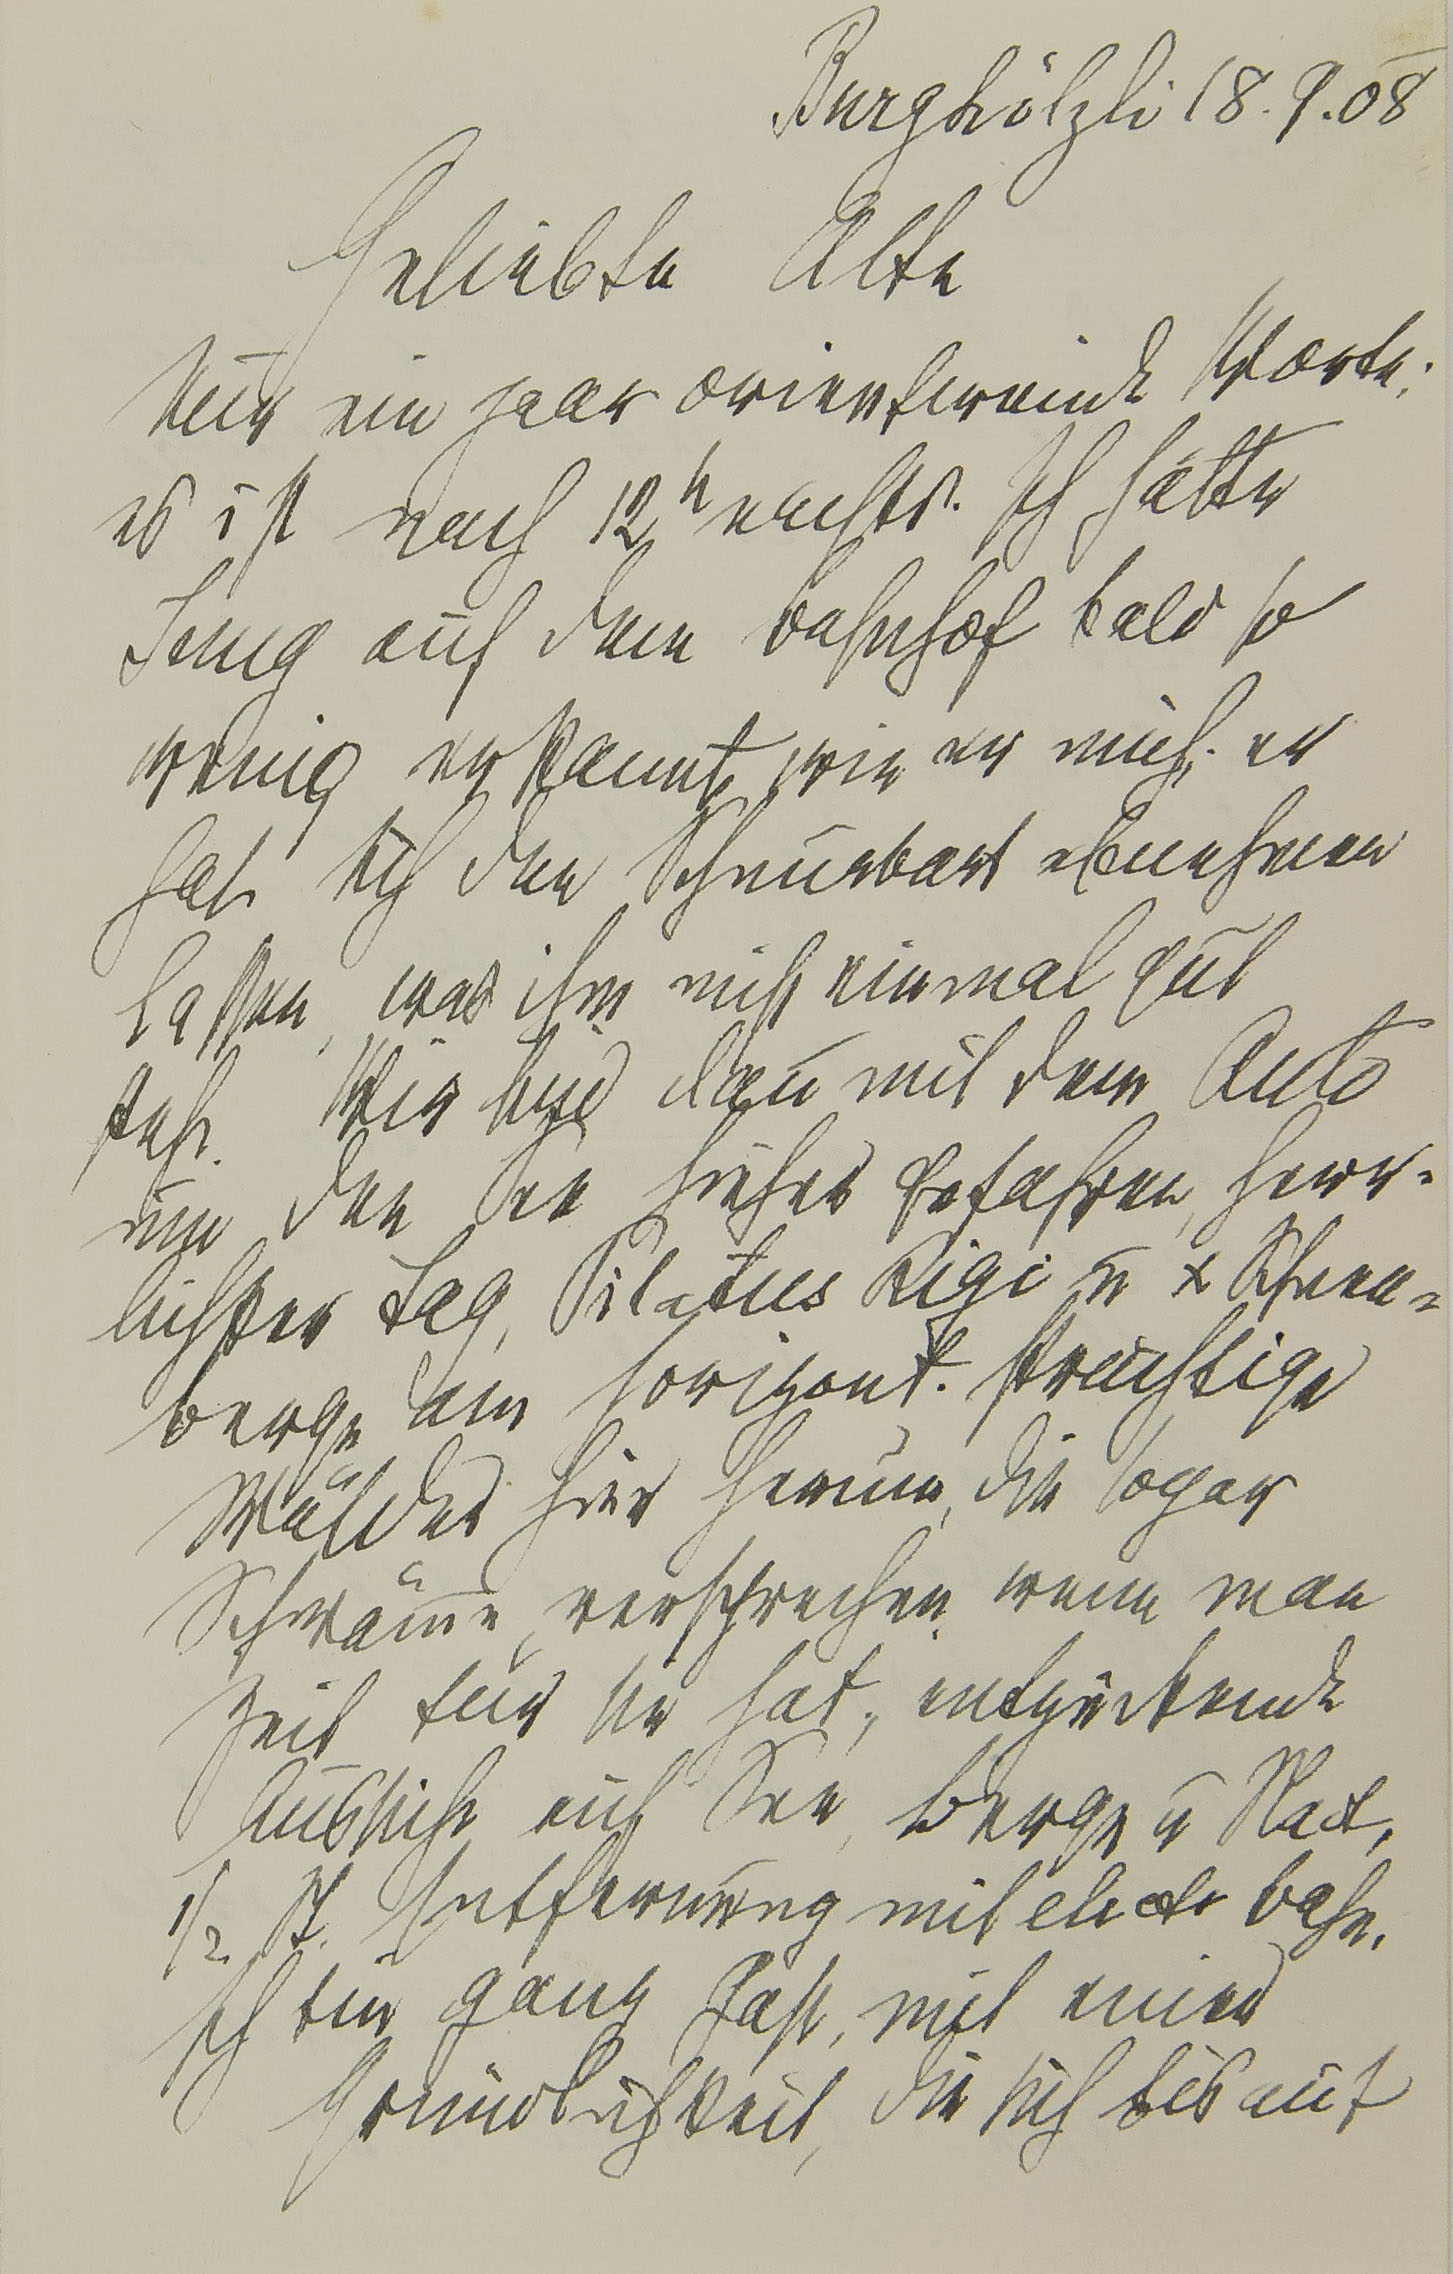 Burghölzli 18.9.08
Geliebte Alte
Nur ein paar orientierende Worte;
es ist nach 12h nachts. Ich hätte
Jung auf dem Bahnhof bald so
wenig erkannt wie er mich; er
hat sich den Schnurbart abnehmen
lassen, was ihm nicht einmal gut
steht. Wir sind dann mit dem Auto
um den See hieher gefahren, herr-
lichster Tag, Pilatus Rigi u x Schnee-
berge am Horizont. Prächtige
Wälder hier herum, die sogar
Schwäme versprechen, wenn man
Zeit für sie hat, entzückende
Aussicht auf See, Berge u Stadt,
1/2 St. Entfernung mit electr Bahn.
Ich bin ganz Gast, mit einer
Gründlichkeit, die sich bis auf